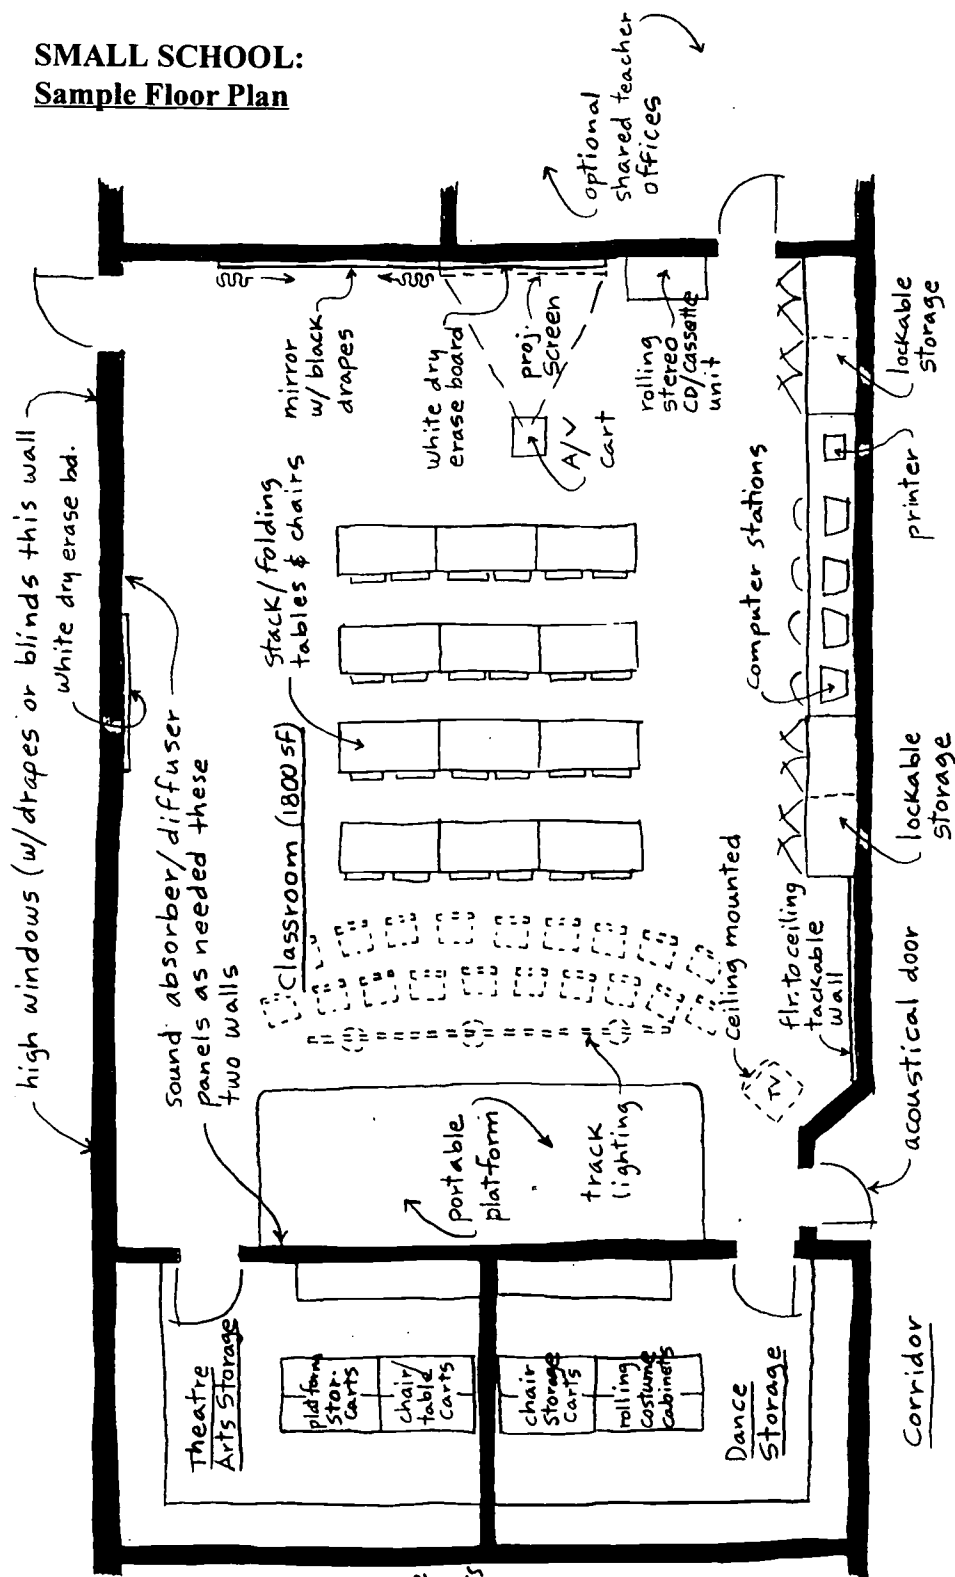 SMALL SCHOOL:
Sample Floor Plan
optional
shared teacher
offices
high windows (w/drapes or blinds this wall
white dry erase bd.
sound absorber/diffuser
panels as needed these
two walls
mirror
w/ black
drapes
white dry
erase board
proj.
screen
rolling
stereo
CD/cassette
unit
A/V
cart
lockable
storage
printer
computer stations
stack/folding
tables & chairs
Classroom (1800 sf)
lockable
storage
ceiling mounted
TV
flr. to ceiling
tackable
wall
acoustical door
track
lighting
portable
platform
Theatre
Arts Storage
platform
stor.
carts
chair/
table
carts
chair
storage
carts
rolling
costume
cabinets
Dance
Storage
Corridor